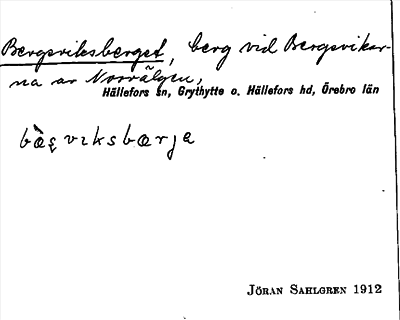 Bergsviksberget, berg vid Bergsvikar-
na av Norrälgen,
Hällefors sn, Grythytte o. Hällefors hd, Örebro län
bæ̀ʂvɪksbærja
JÖRAN SAHLGREN 1912